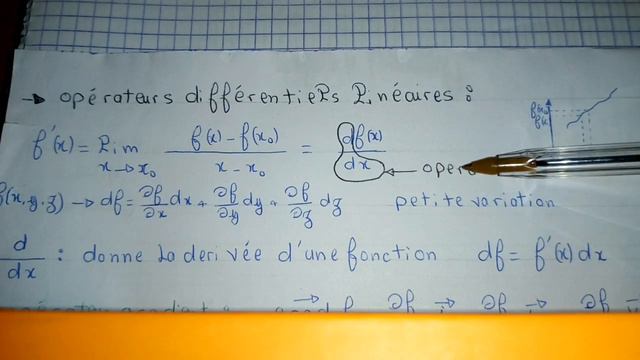 → opérateurs différentiels linéaires :
f'(x) = lim x→x₀ (f(x) - f(x₀)) / (x - x₀) = df(x)/dx ← oper
f(x,y,z) → df = ∂f/∂x dx + ∂f/∂y dy + ∂f/∂z dz petite variation
d/dx : donne la derivée d'une fonction df = f'(x) dx